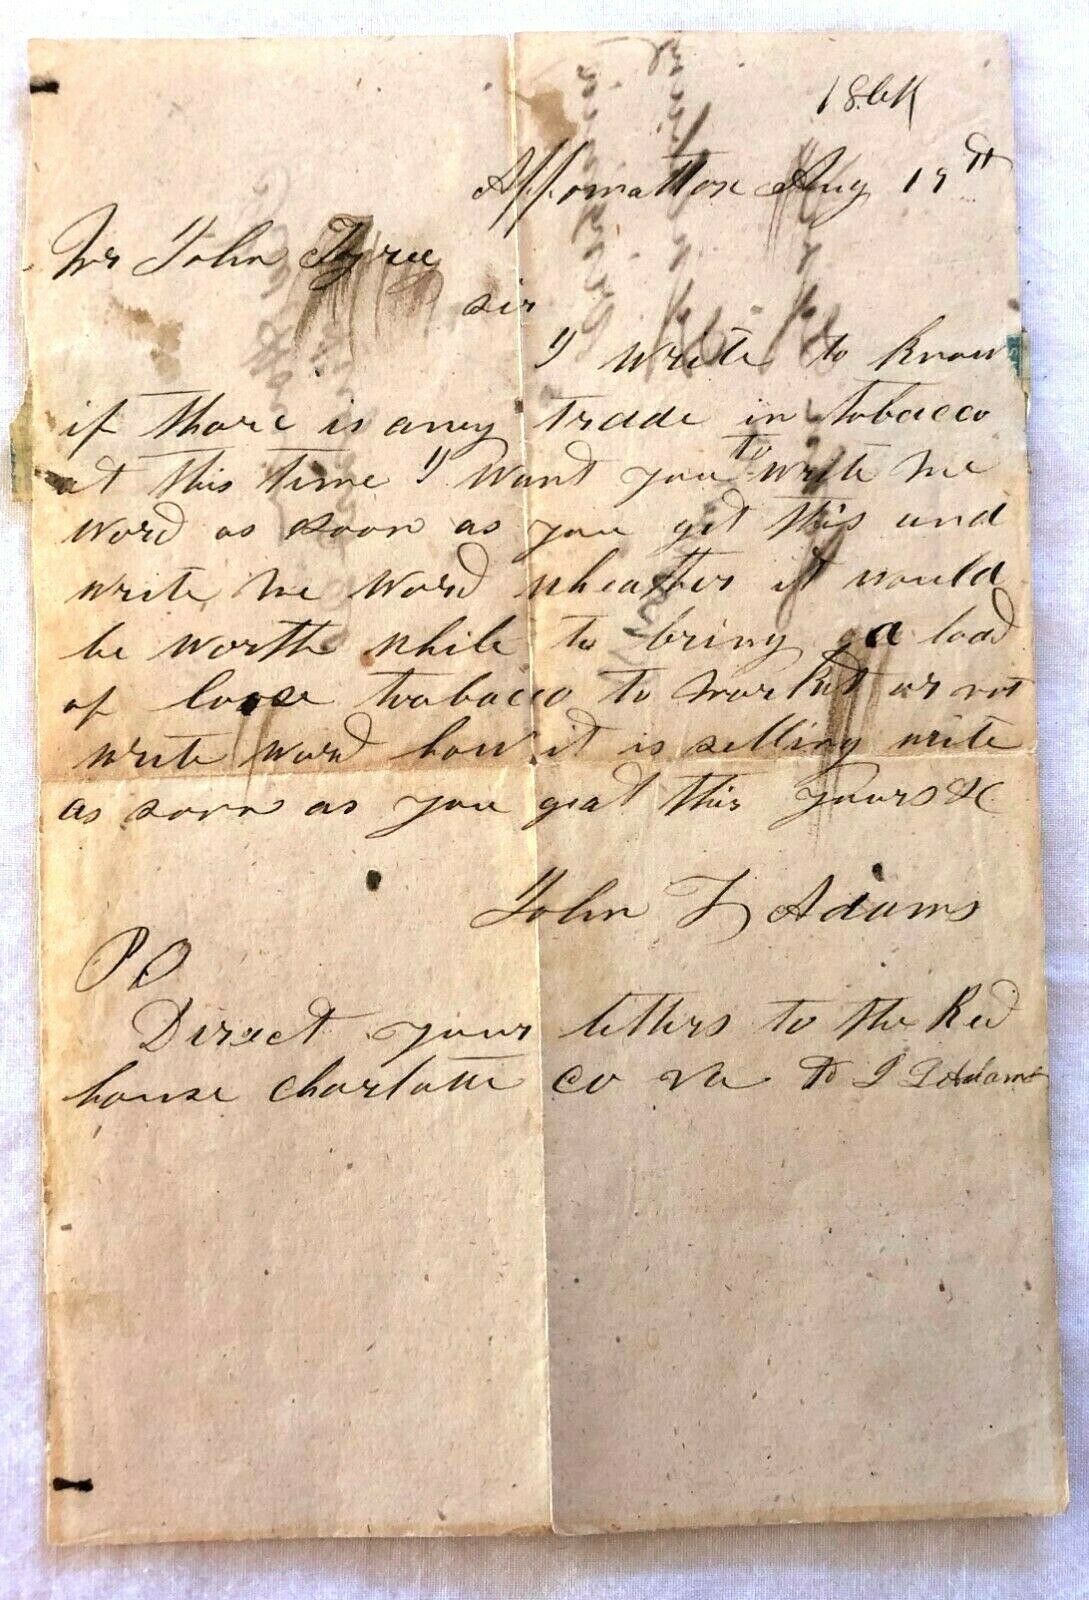 Appomattox Aug 19th
Mr John Tyree
sir
I write to know
if thare is aney trade in tobacco
at this time I want you to write me
word as soon as you get this and
write me word wheather it would
be worth while to bring a load
of loose toobacco to market or not
write word how it is selling write
as soon as you geat this yours &C
John T Adams
PO
Direct your letters to the Red
house Charlotte co va to J T Adams